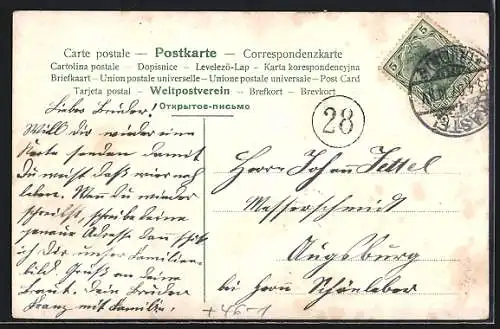 Carte postale – Postkarte – Correspondenzkarte
Cartolina postale – Dopisnice – Levelező-Lap – Karta korespondencyjna
Briefkaart – Union postale universelle – Unione postale universale – Post Card
Tarjeta postal – Weltpostverein – Brefkort – Brevkort
Открытое-письмо
Lieber Bruder!
Will dir wieder eine
Karte senden damit
du weist daß wir noch
leben. Wen du wieder
schreibst, schreibe deine
genaue Adresse dan schik
ich dir unser Familien-
bild. Gruß an deine
Braut. Dein Bruder
Franz mit Familie.
28
5
5
Herrn Johann Tettel
Messerschmidt
Augsburg
bei Herrn Schönleber